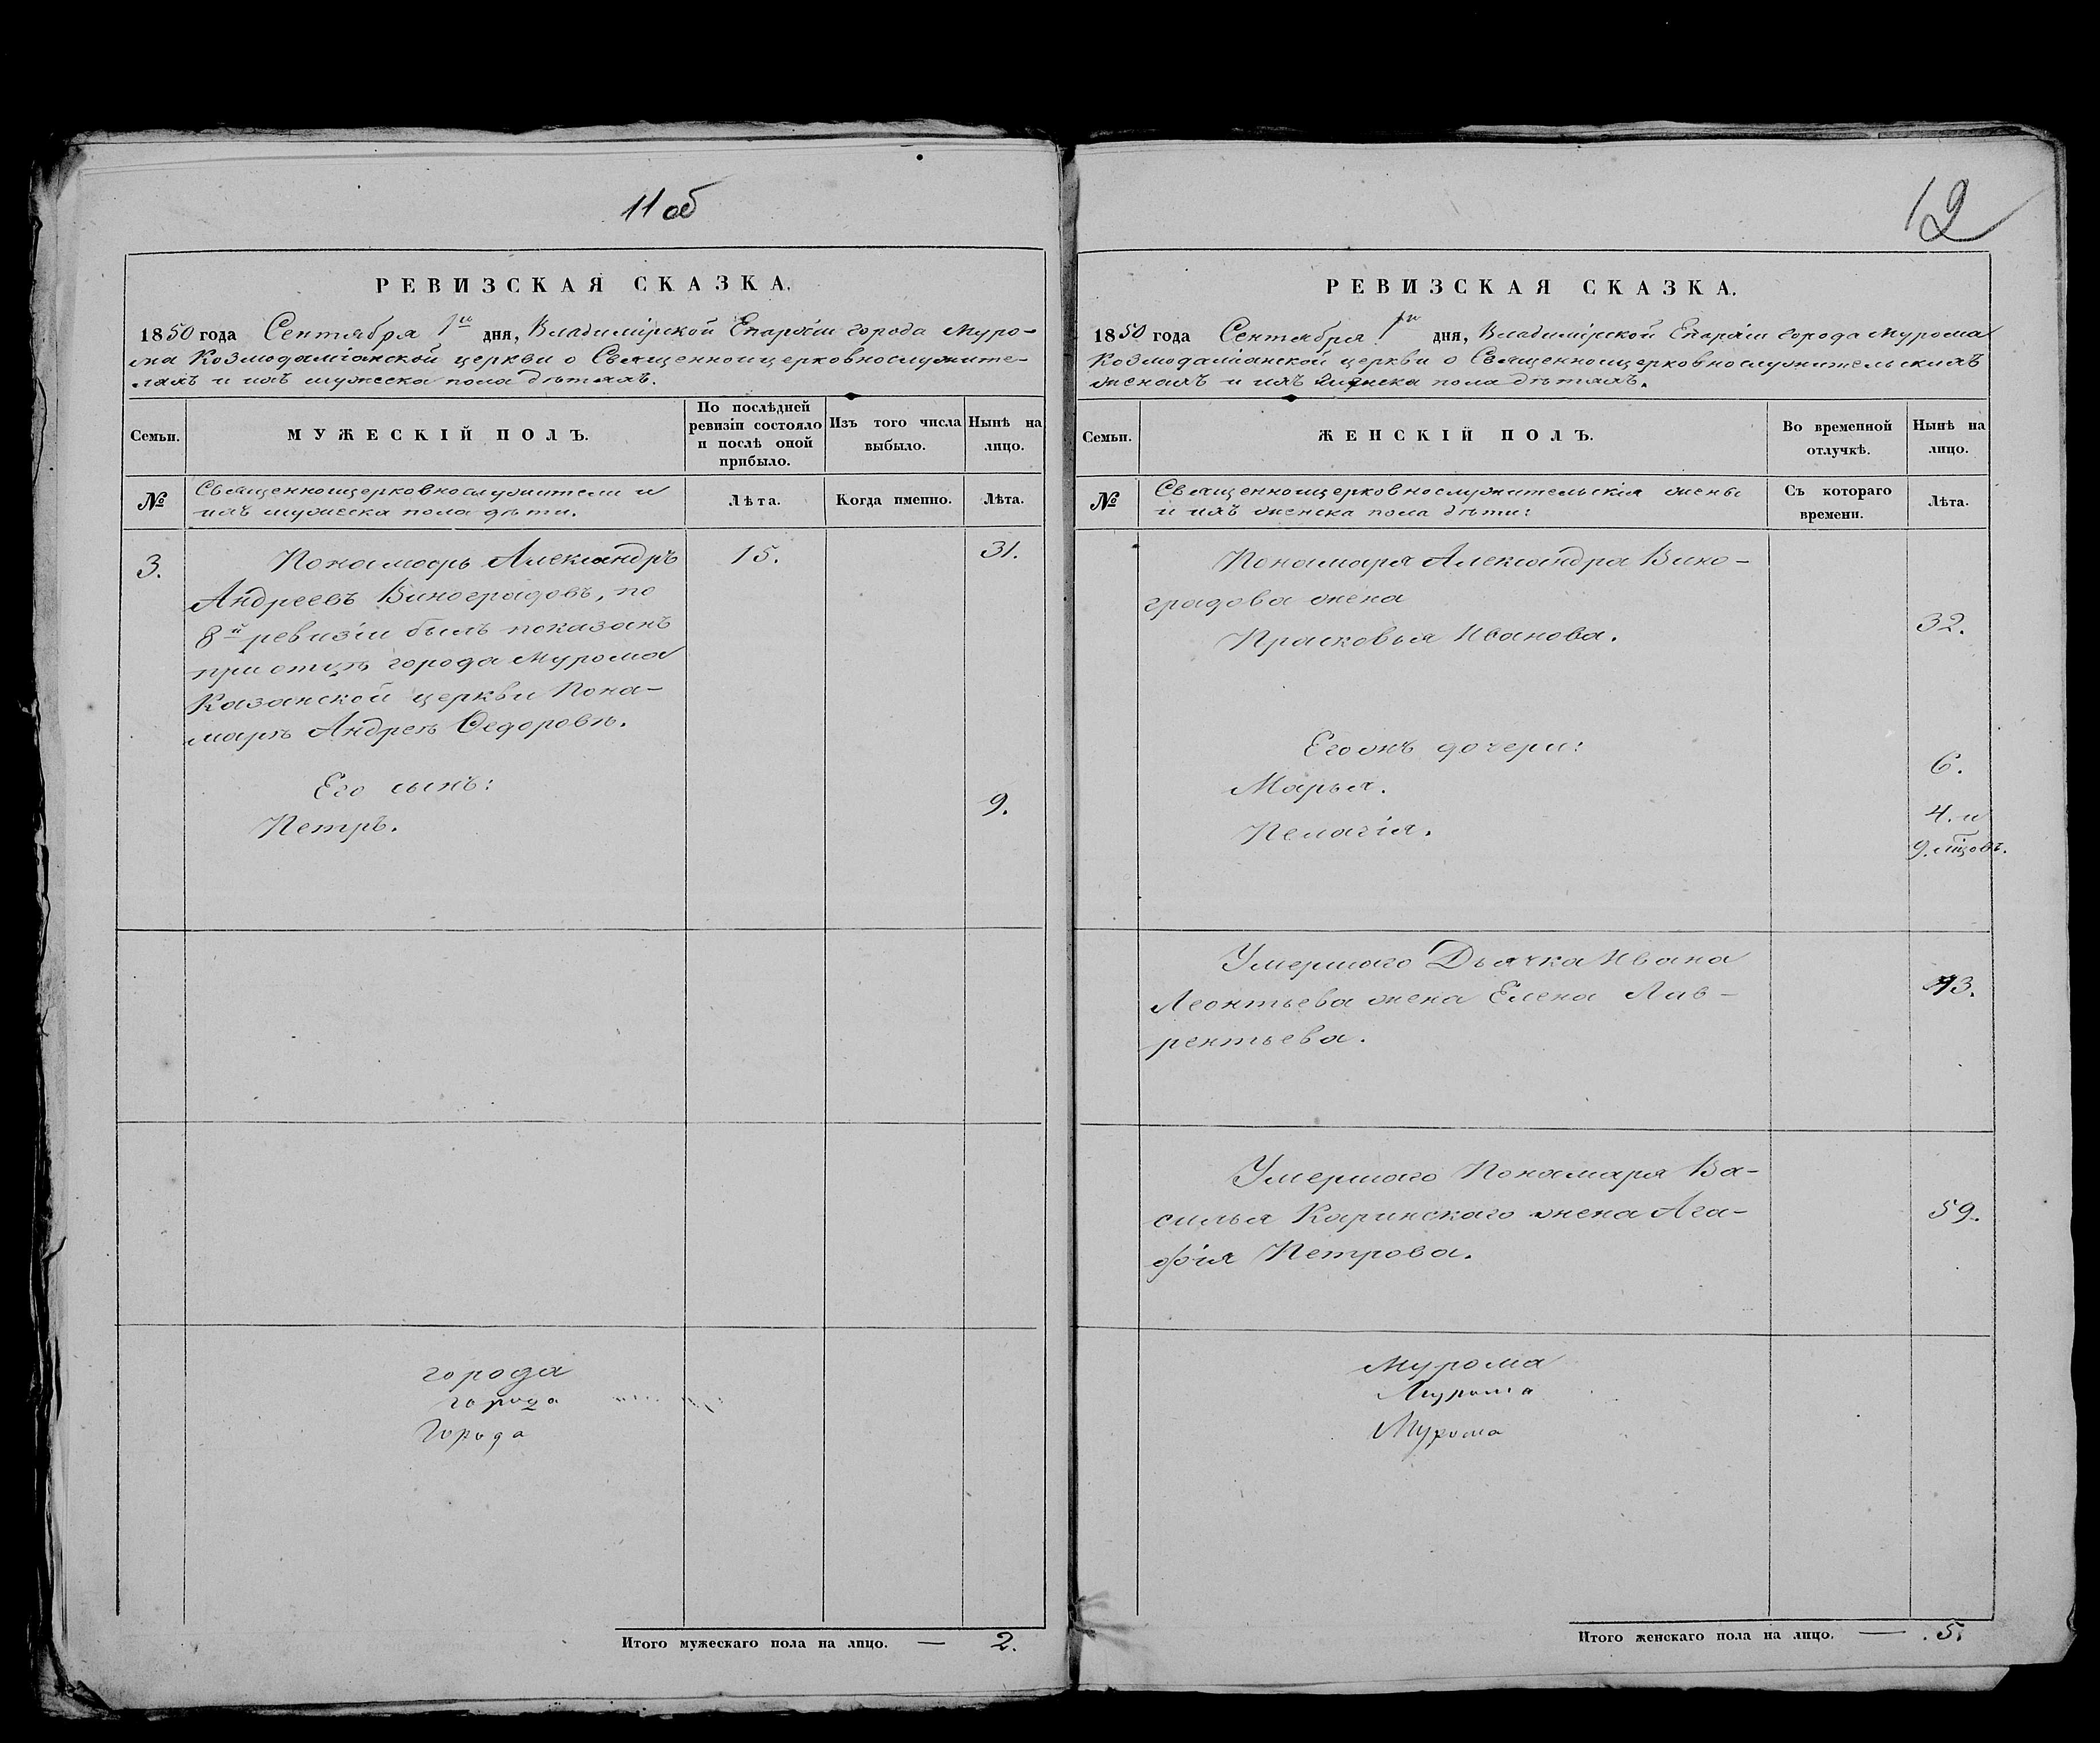 11 об
РЕВИЗСКАЯ СКАЗКА.
1850 года Сентября 1го дня, Владимірской Епархіи города Муро-
ма Козмодаміанской церкви о Священноицерковнослужите-
ляхъ и ихъ мужеска пола дѣтяхъ.
Семьи.
МУЖЕСКІЙ ПОЛЪ.
По послѣдней
ревизіи состояло
и послѣ оной
прибыло.
Изъ того числа
выбыло.
Нынѣ на
лицо.
№
Священноицерковнослужители и
ихъ мужеска пола дѣти.
Лѣта.
Когда именно.
Лѣта.
3.
Пономарь Александръ
15.
31.
Андреевъ Виноградовъ, по
8й ревизіи былъ показанъ
при отцѣ города Мурома
Казанской церкви Поно-
марѣ Андреѣ Ѳедоровѣ.
Его сынъ:
Петръ.
9.
города
города
Города
Итого мужескаго пола на лицо. — 2.
12
РЕВИЗСКАЯ СКАЗКА.
1850 года Сентября 1го дня, Владимірской Епархіи города Мурома
Козмодаміанской церкви о Священноицерковнослужительскихъ
женахъ и ихъ женска пола дѣтяхъ.
Семьи.
ЖЕНСКІЙ ПОЛЪ.
Во временной
отлучкѣ.
Нынѣ на
лицо.
№
Священноицерковнослужительскія жены
и ихъ женска пола дѣти:
Съ котораго
времени.
Лѣта.
Пономаря Александра Вино-
градова жена
Прасковья Иванова.
32.
Его жъ дочери:
Марья.
6.
Пелагія.
4. и
9. мцовъ.
Умершаго Дьячка Ивана
Леонтьева жена Елена Лав-
рентьева.
73.
Умершаго Пономаря Ва-
силья Каринскаго жена Ага-
фія Петрова.
59.
Мурома
Мурома
Мурома
Итого женскаго пола на лицо. — 5.